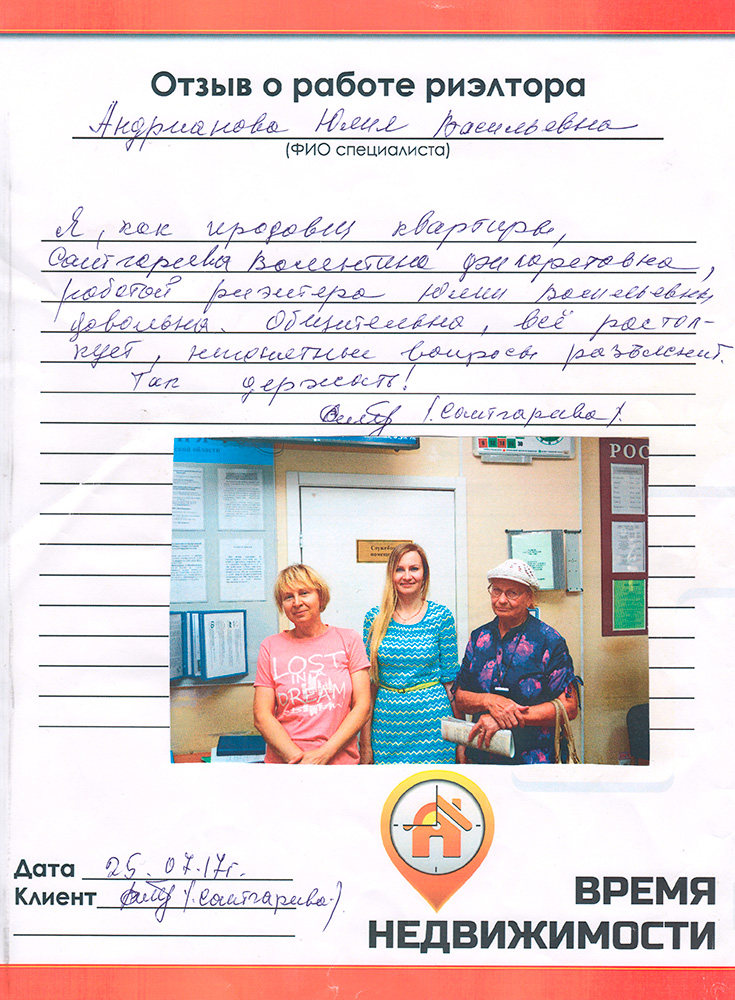 Отзыв о работе риэлтора
Андрианова Юлия Васильевна
(ФИО специалиста)
Я, как продавец квартиры,
Саитгариева Валентина
работой риэлтера Юлии Васильевны
довольна. Общительна, всё растол-
кует, непонятные вопросы разъяснит.
Так держать!
РОС
Служебное
помещение
LOST
IN A
DREAM
Дата 25.07.17г.
Клиент
ВРЕМЯ
НЕДВИЖИМОСТИ